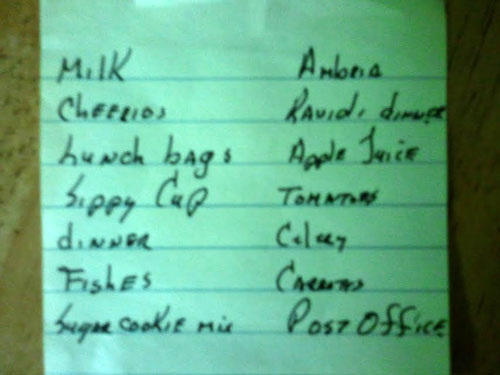 Milk
Cheerios
Lunch bags
Sippy Cup
dinner
Fishes
Sugar cookie mix
Ravioli dinner
Apple Juice
Tomatoes
Celery
Carrots
Post Office